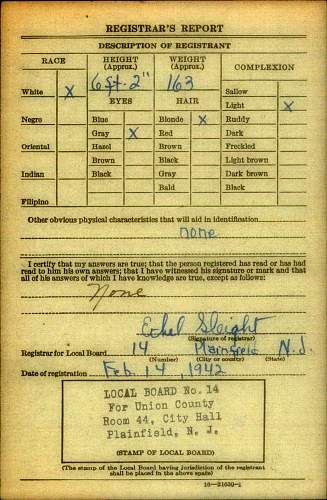 REGISTRAR'S REPORT
DESCRIPTION OF REGISTRANT
RACE HEIGHT (Approx.) WEIGHT (Approx.) COMPLEXION
White X 6 ft-2" 163 Sallow
EYES HAIR Light X
Negro Blue Blonde X Ruddy
Gray X Red Dark
Oriental Hazel Brown Freckled
Brown Black Light brown
Indian Black Gray Dark brown
Bald Black
Filipino
Other obvious physical characteristics that will aid in identification
none
I certify that my answers are true; that the person registered has read or has had
read to him his own answers; that I have witnessed his signature or mark and that
all of his answers of which I have knowledge are true, except as follows:
None
Ethel Sleight
(Signature of registrar)
Registrar for Local Board 14 Plainfield N.J.
(Number) (City or county) (State)
Date of registration Feb. 14, 1942
LOCAL BOARD No. 14
For Union County
Room 44, City Hall
Plainfield, N. J.
(STAMP OF LOCAL BOARD)
(The stamp of the Local Board having jurisdiction of the registrant
shall be placed in the above space)
16—21630-1